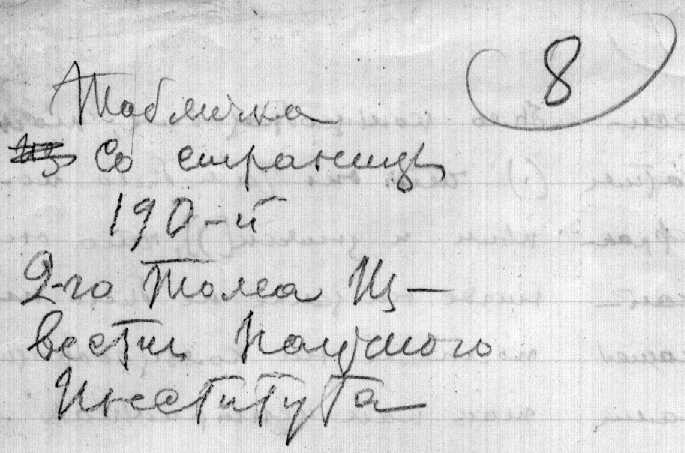 8
Табличка
~~Из~~ Со страницы
190-й
2-го Тома Из-
вестий Научного
Института